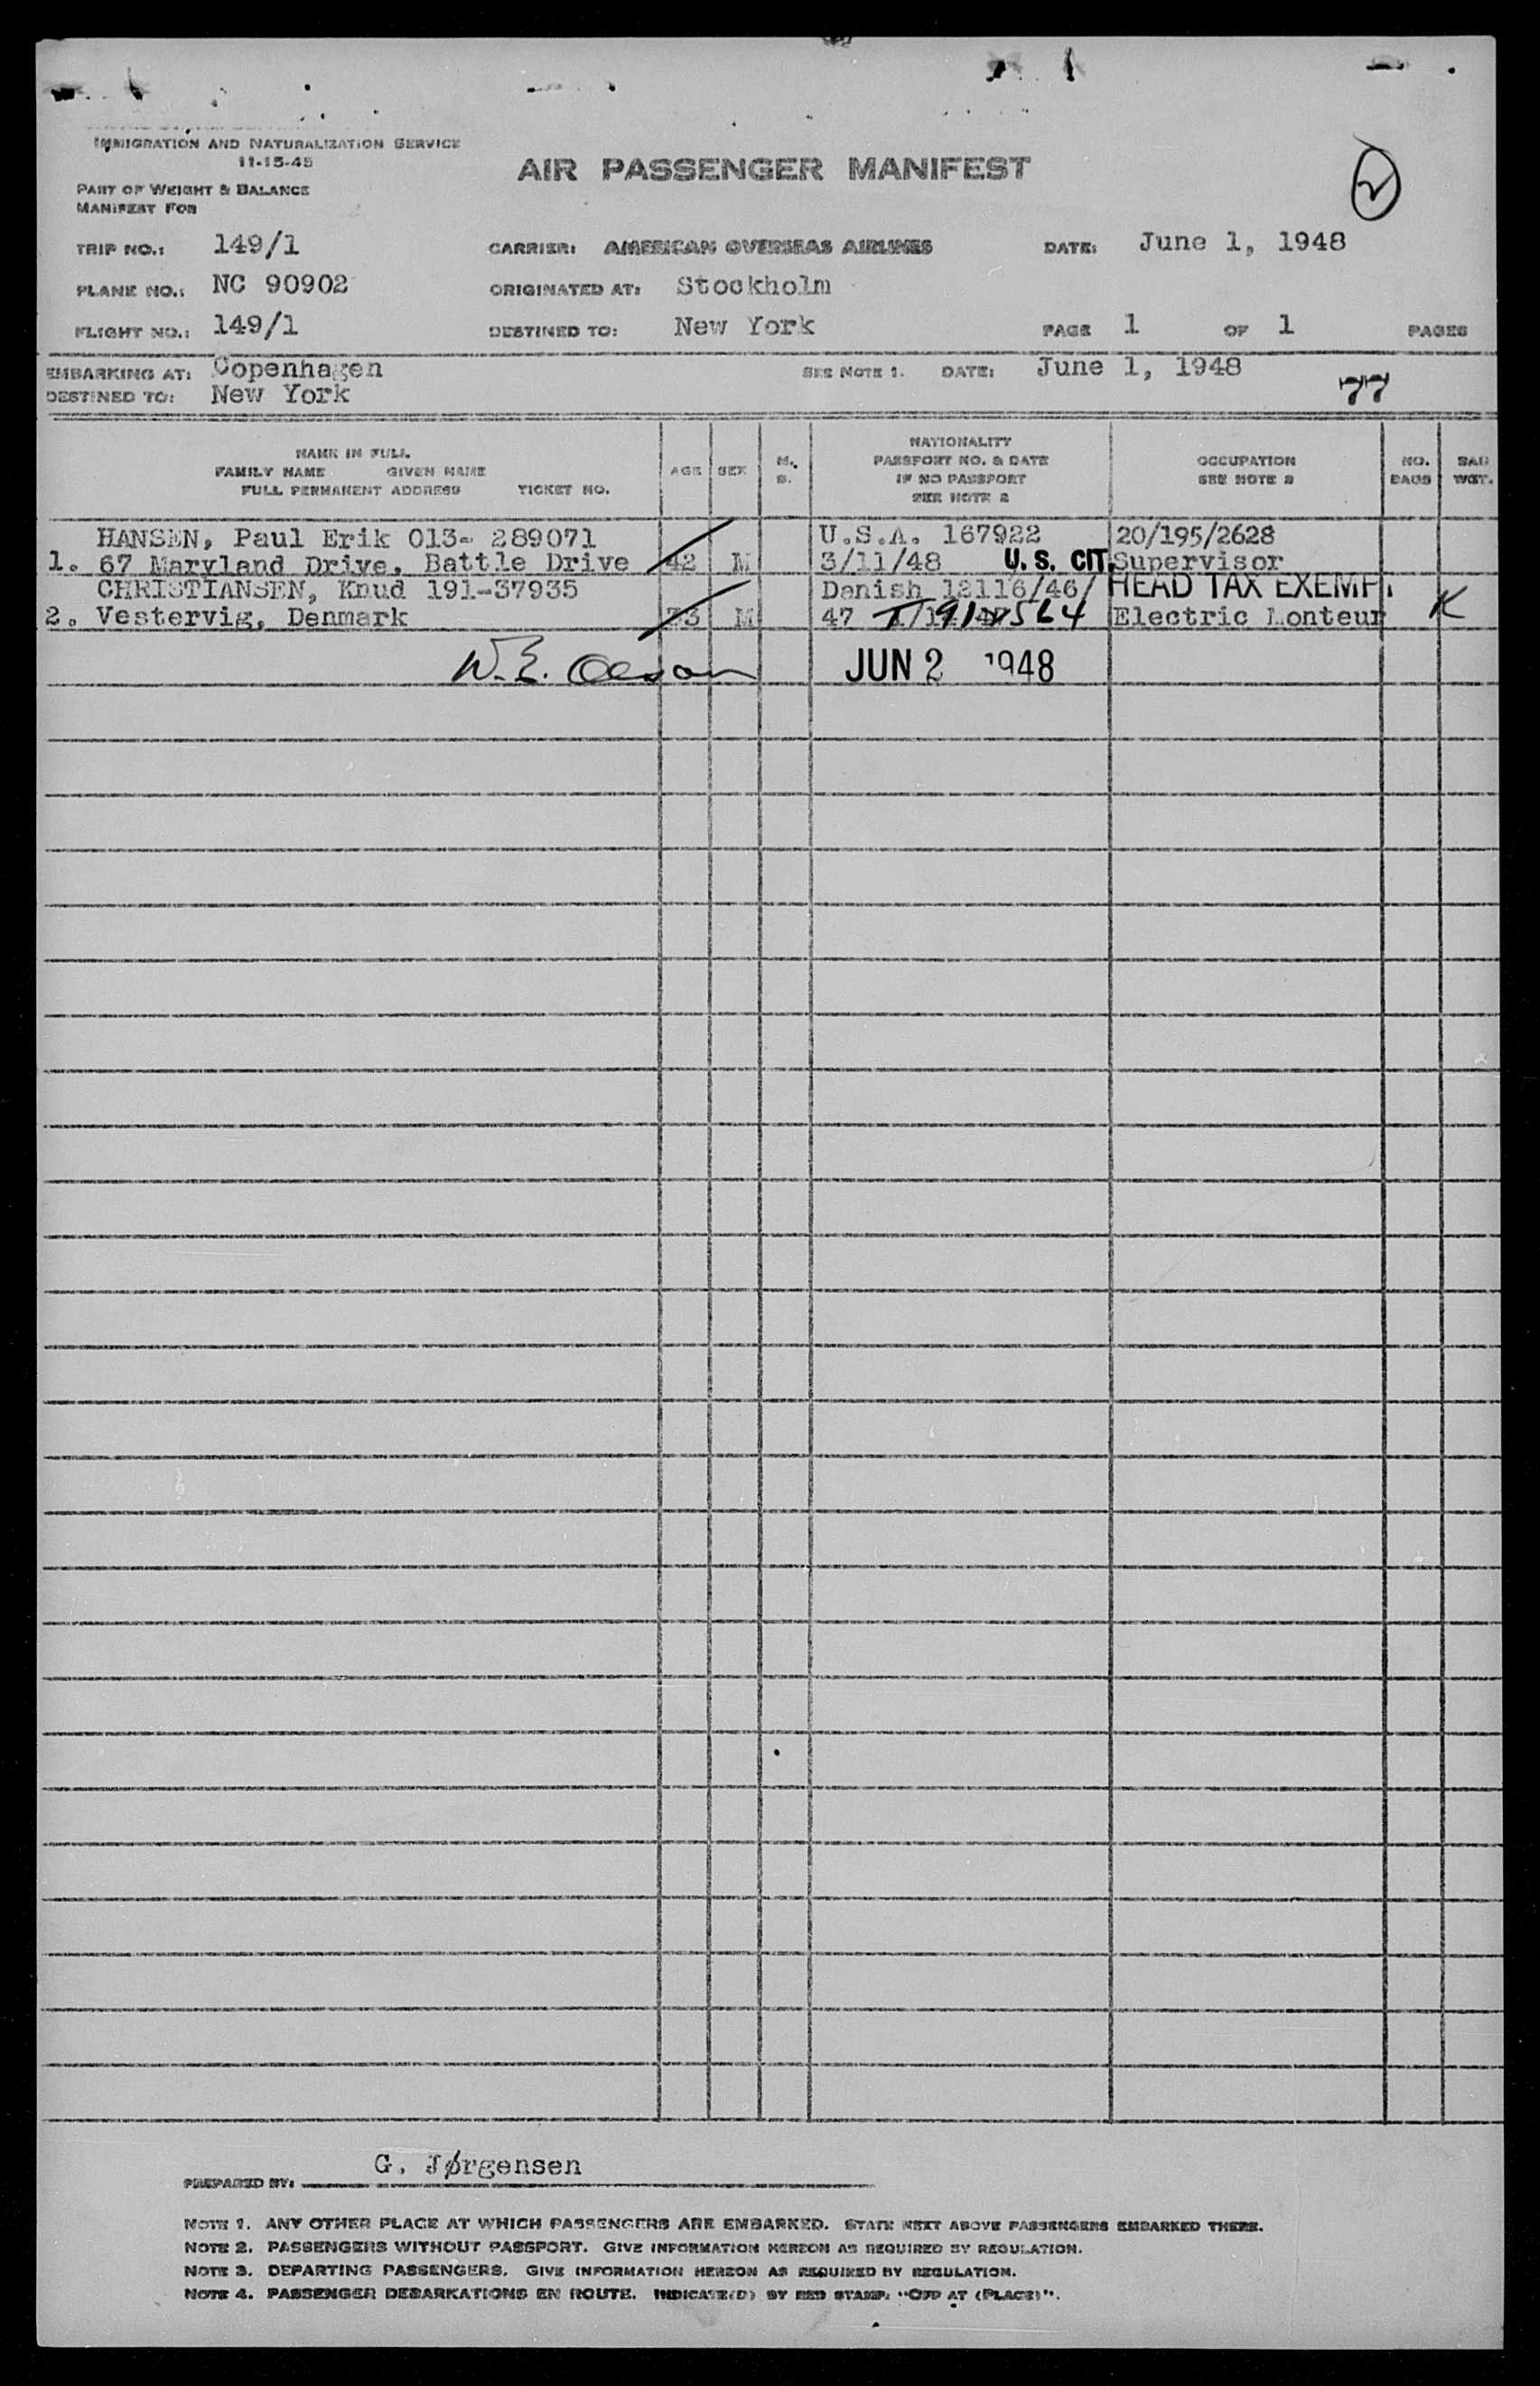 IMMIGRATION AND NATURALIZATION SERVICE
11-15-45
AIR PASSENGER MANIFEST
2
PART OF WEIGHT & BALANCE
MANIFEST FOR
TRIP NO.: 149/1 CARRIER: AMERICAN OVERSEAS AIRLINES DATE: June 1, 1948
PLANE NO.: NC 90902 ORIGINATED AT: Stockholm
FLIGHT NO.: 149/1 DESTINED TO: New York PAGE 1 OF 1 PAGES
EMBARKING AT: Copenhagen SEE NOTE 1. DATE: June 1, 1948
DESTINED TO: New York 77
NAME IN FULL
FAMILY NAME GIVEN NAME
FULL PERMANENT ADDRESS TICKET NO.
AGE SEX M. S.
NATIONALITY
PASSPORT NO. & DATE
IF NO PASSPORT
SEE NOTE 2
OCCUPATION
SEE NOTE 3
NO. BAGS
BAG WGT.
HANSEN, Paul Erik 013- 289071 U.S.A. 167922 20/195/2628
1. 67 Maryland Drive, Battle Drive 42 M 3/11/48 U.S. CIT. Supervisor
CHRISTIANSEN, Knud 191-37935 Danish 12116/46/ HEAD TAX EXEMPT
2. Vestervig, Denmark M 47 Electric Monteur K
W.E. Olson JUN 2 1948
PREPARED BY: G. Jørgensen
NOTE 1. ANY OTHER PLACE AT WHICH PASSENGERS ARE EMBARKED. STATE NEXT ABOVE PASSENGERS EMBARKED THERE.
NOTE 2. PASSENGERS WITHOUT PASSPORT. GIVE INFORMATION HEREON AS REQUIRED BY REGULATION.
NOTE 3. DEPARTING PASSENGERS. GIVE INFORMATION HEREON AS REQUIRED BY REGULATION.
NOTE 4. PASSENGER DEBARKATIONS EN ROUTE. INDICATE(D) BY RED STAMP: "OFF AT (PLACE)".